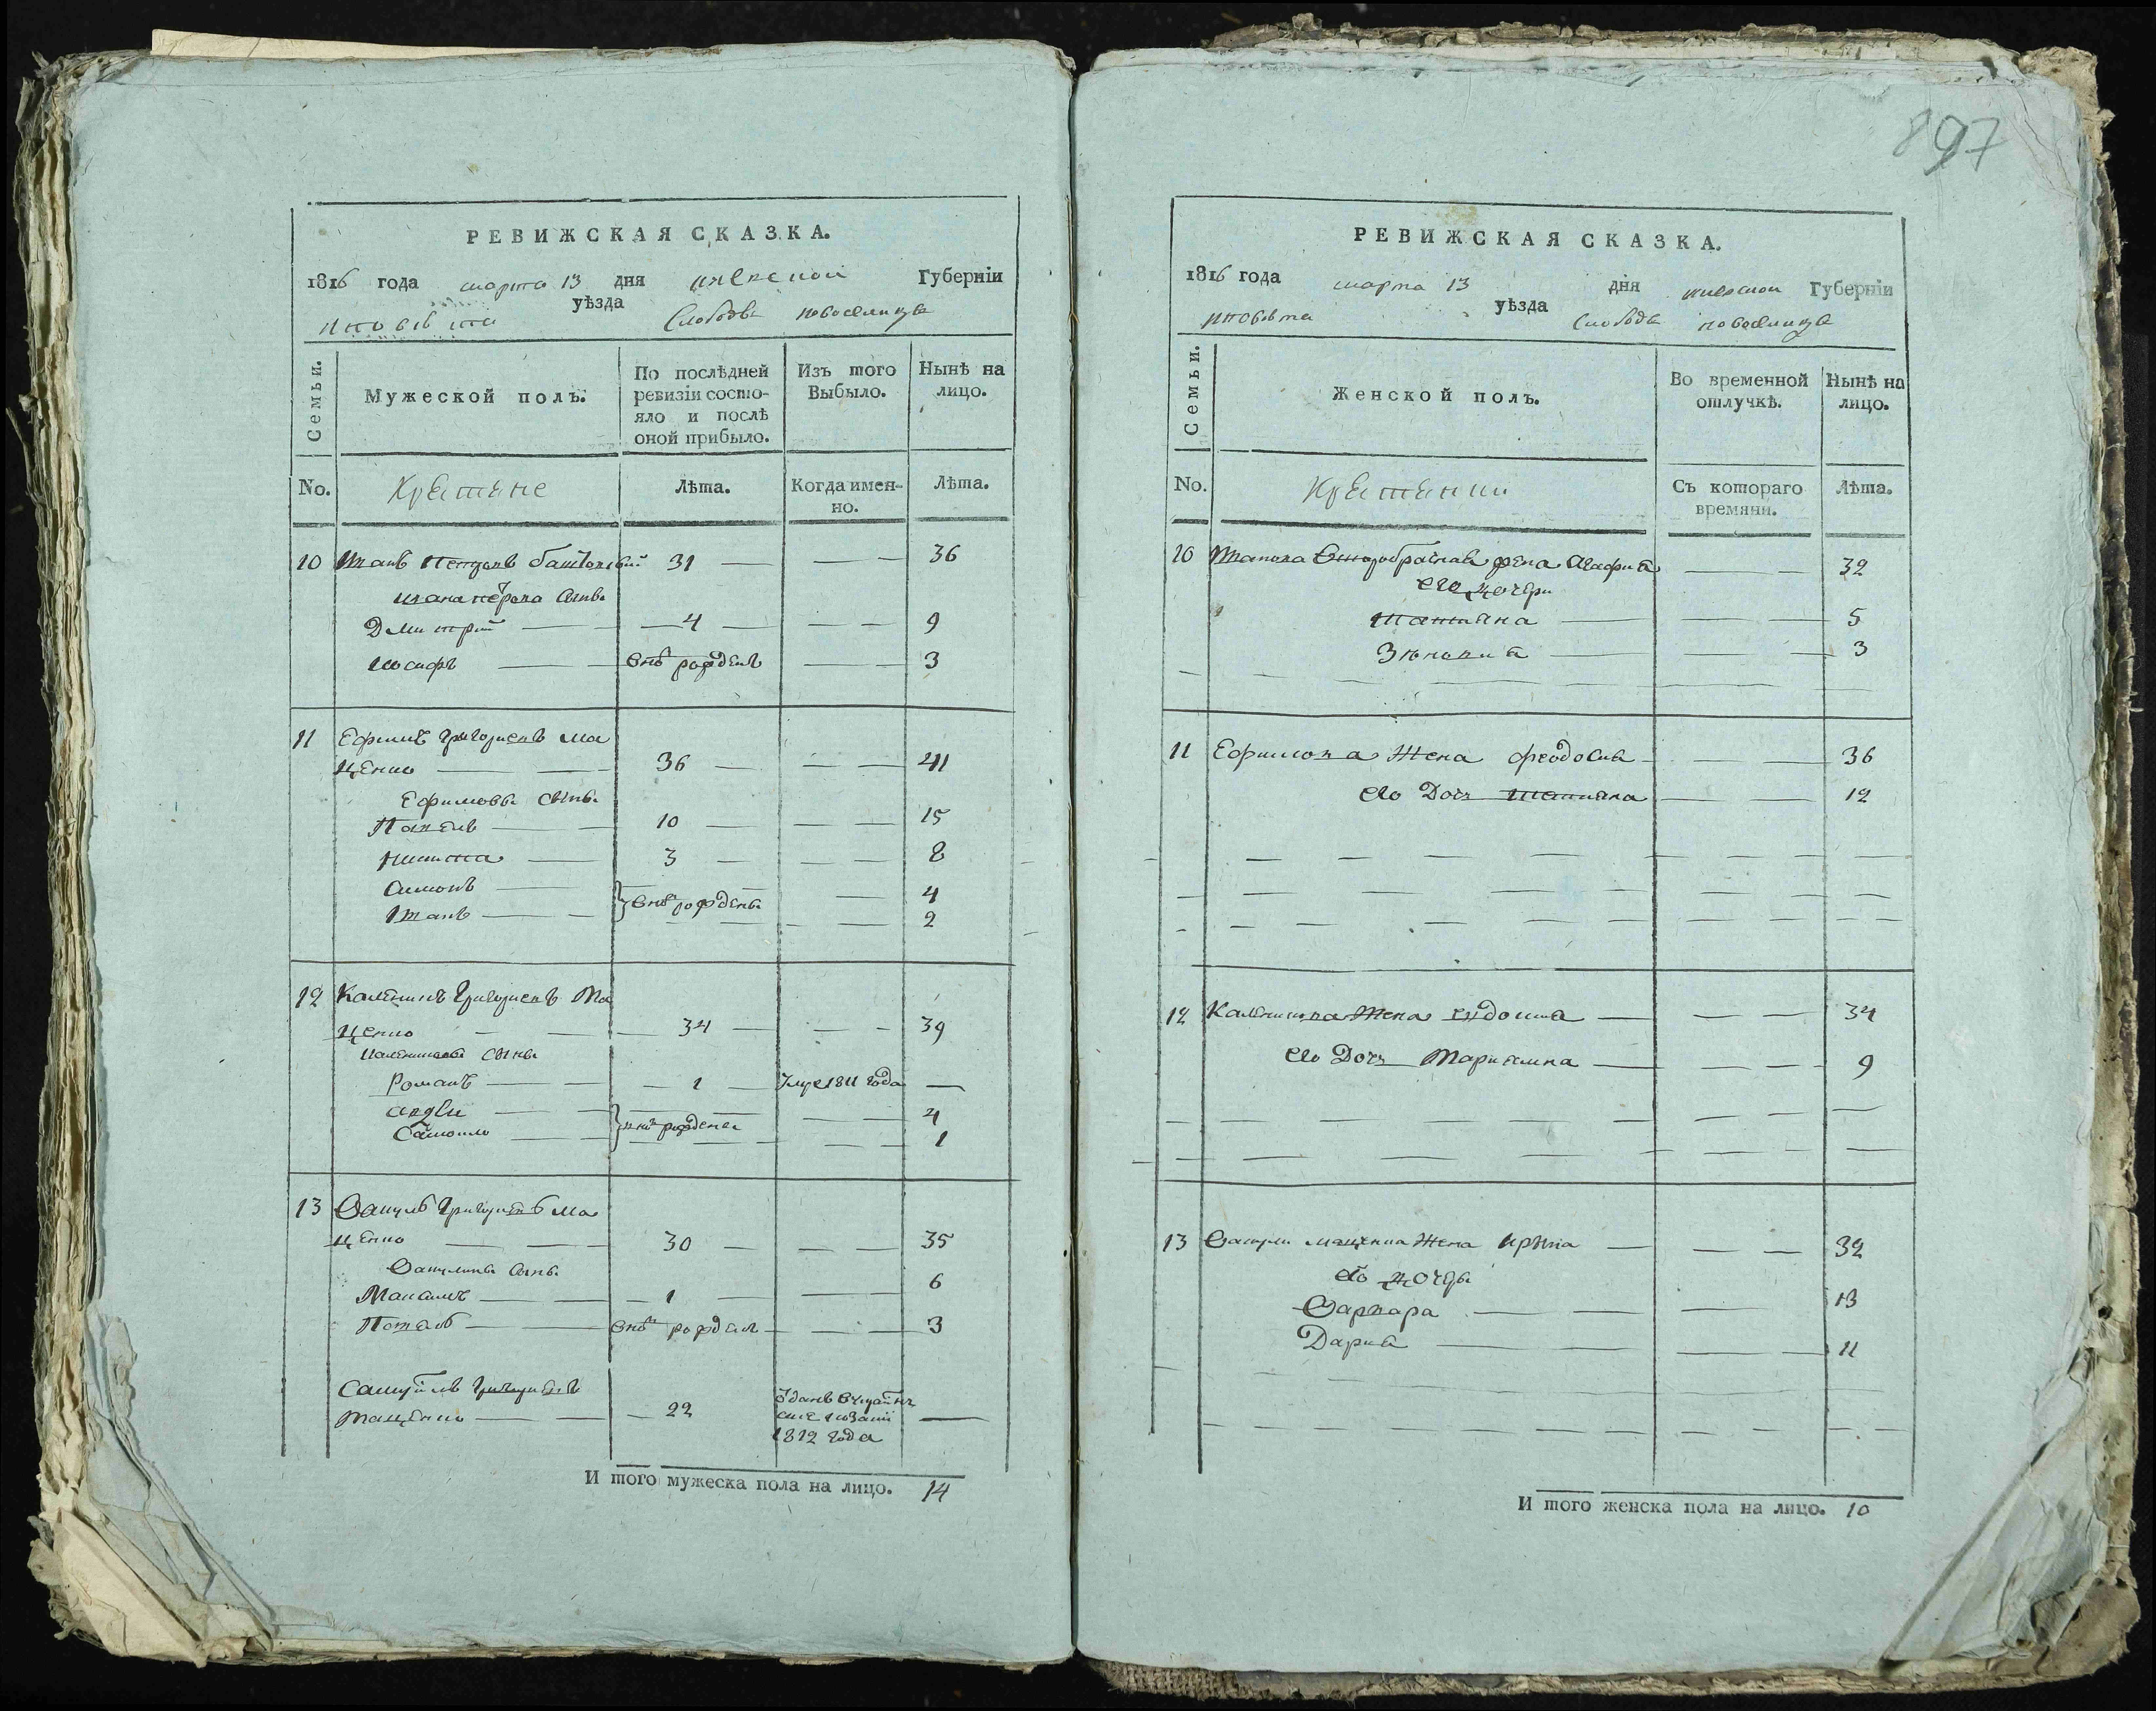 897
РЕВИЖСКАЯ СКАЗКА.
1816 года марта 13 дня киевской Губерніи
уѣзда Слободы новоселицы
Семьи.
Мужеской полъ.
По послѣдней ревизіи состо-
яло и послѣ
оной прибыло.
Изъ того
Выбыло.
Нынѣ на
лицо.
No.
Крестяне
Лѣта.
Когда имен-
но.
Лѣта.
10 Иванъ 31 — — — 36
Ивана сынъ
Дмитрій — 4 — — — 9
Иосифъ — рожденъ — — 3
11 Ефимъ Григориевъ Ма
ценко — — 36 — — — 41
Ефимовы сыны
Павелъ — — 10 — — — 15
Никита — 3 — — — 8
Симонъ — — 4
Иванъ — — рождены — 2
12 Каленикъ Григориевъ Ма
ценко — — 34 — — — 39
Калениковы сыны
Романъ — — 1 — умре 1811 года —
андрей — — — 4
Самоило — рождены — 1
13 Григориевъ Ма
ценко — — 30 — — — 35
сыны
Максимъ — — 1 — — — 6
Павелъ — рожденъ — — 3
Самуйлъ Григориевъ
Маценко — — 22 —
1812 года
И того мужеска пола на лицо. 14
РЕВИЖСКАЯ СКАЗКА.
1816 года марта 13 дня киевской Губерніи
уѣзда Слободы новоселицы
Семьи.
Женской полъ.
Во временной
отлучкѣ.
Нынѣ на
лицо.
No.
Крестянки
Съ котораго
времяни.
Лѣта.
10 Ивана жена Агафия — — 32
его дочери
Татияна — — — 5
Зѣновия — — — 3
11 Ефимова Жена феодосия — — — 36
его Дочь Татияна — — 12
12 Каленикова Жена евдокия — — — 34
его Дочь Мариямна — — — 9
13 маценка Жена Ирина — — — 32
его дочеры
Варвара — — — 13
Дария — — — 11
И того женска пола на лицо. 10